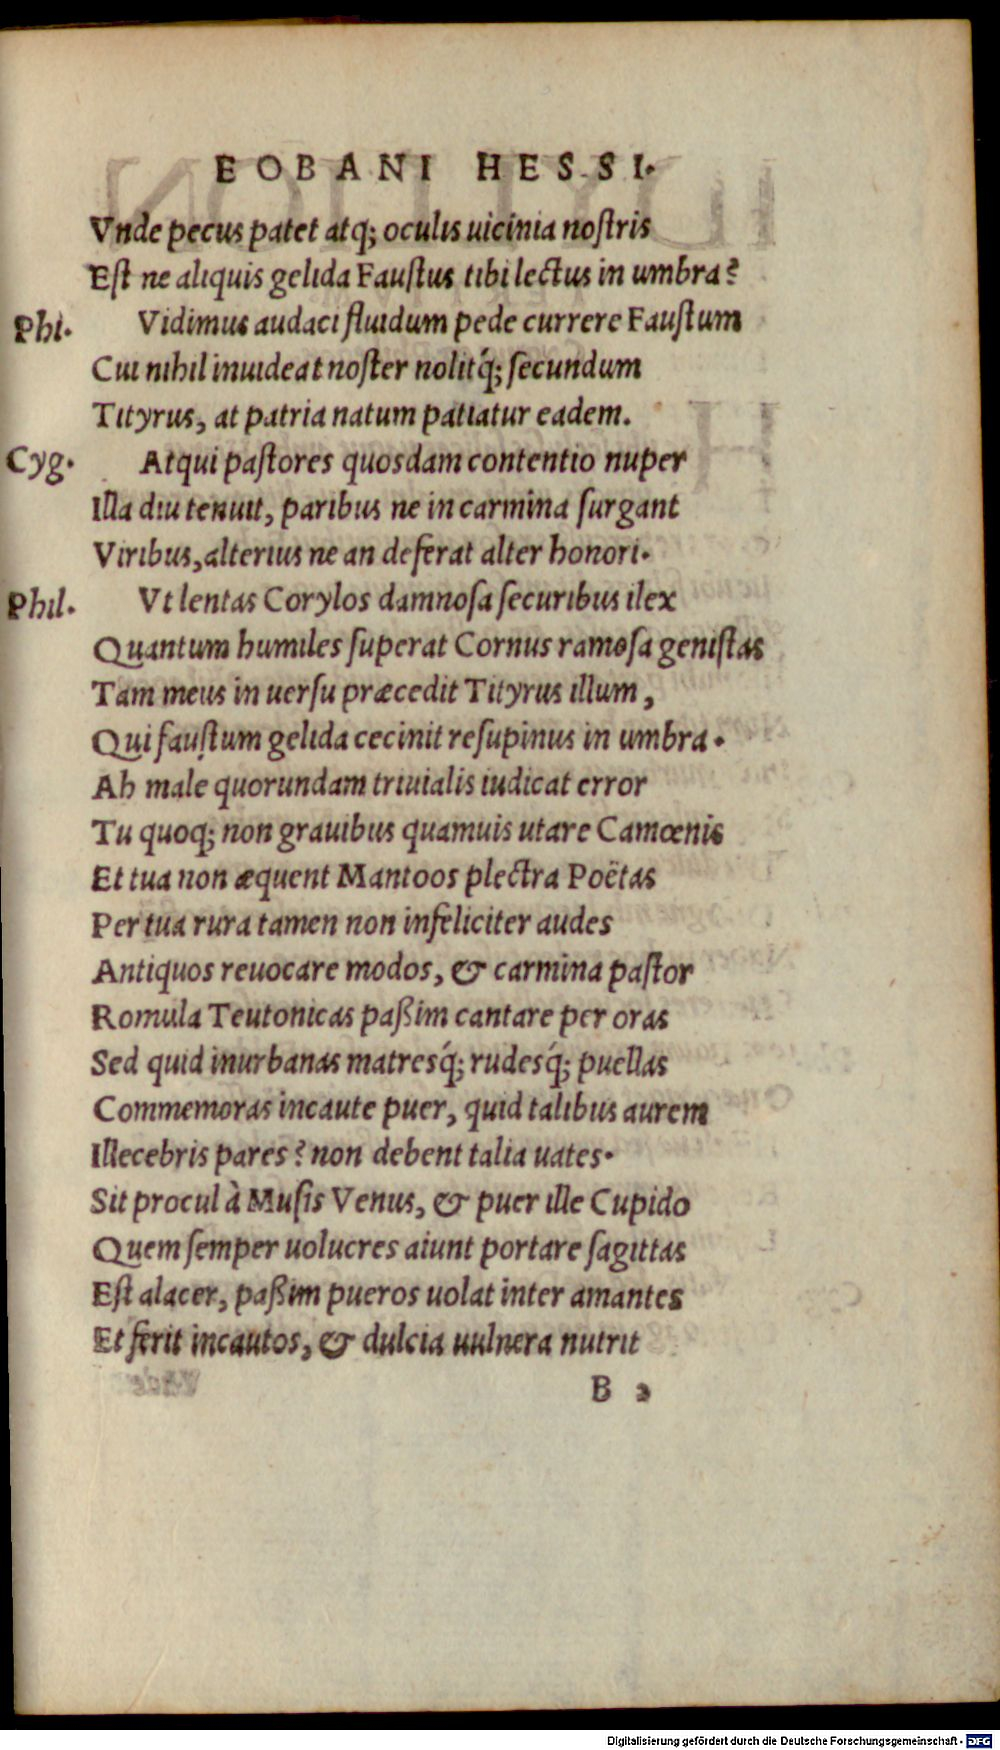 EOBANI HESSI.
Vnde pecus patet atq; oculis uicinia noſtris
Eſt ne aliquis gelida Fauſtus tibi lectus in umbra?
Phi. Vidimus audaci fluidum pede currere Fauſtum
Cui nihil inuideat noſter nolitq́; ſecundum
Tityrus, at patria natum patiatur eadem.
Cyg. Atqui paſtores quosdam contentio nuper
Illa diu tenuit, paribus ne in carmina ſurgant
Viribus, alterius ne an deferat alter honori.
Phil. Vt lentas Corylos damnoſa ſecuribus ilex
Quantum humiles ſuperat Cornus ramoſa geniſtas
Tam meus in uerſu præcedit Tityrus illum,
Qui fauſtum gelida cecinit reſupinus in umbra.
Ah male quorundam triuialis iudicat error
Tu quoq; non grauibus quamuis utare Camœnis
Et tua non æquent Mantoos plectra Poëtas
Per tua rura tamen non infeliciter audes
Antiquos reuocare modos, & carmina paſtor
Romula Teutonicas paßim cantare per oras
Sed quid inurbanas matresq́; rudesq́; puellas
Commemoras incaute puer, quid talibus aurem
Illecebris pares? non debent talia uates.
Sit procul à Muſis Venus, & puer ille Cupido
Quem ſemper uolucres aiunt portare ſagittas
Eſt alacer, paßim pueros uolat inter amantes
Et ferit incautos, & dulcia uulnera nutrit
B 2
Digitalisierung gefördert durch die Deutsche Forschungsgemeinschaft - DFG